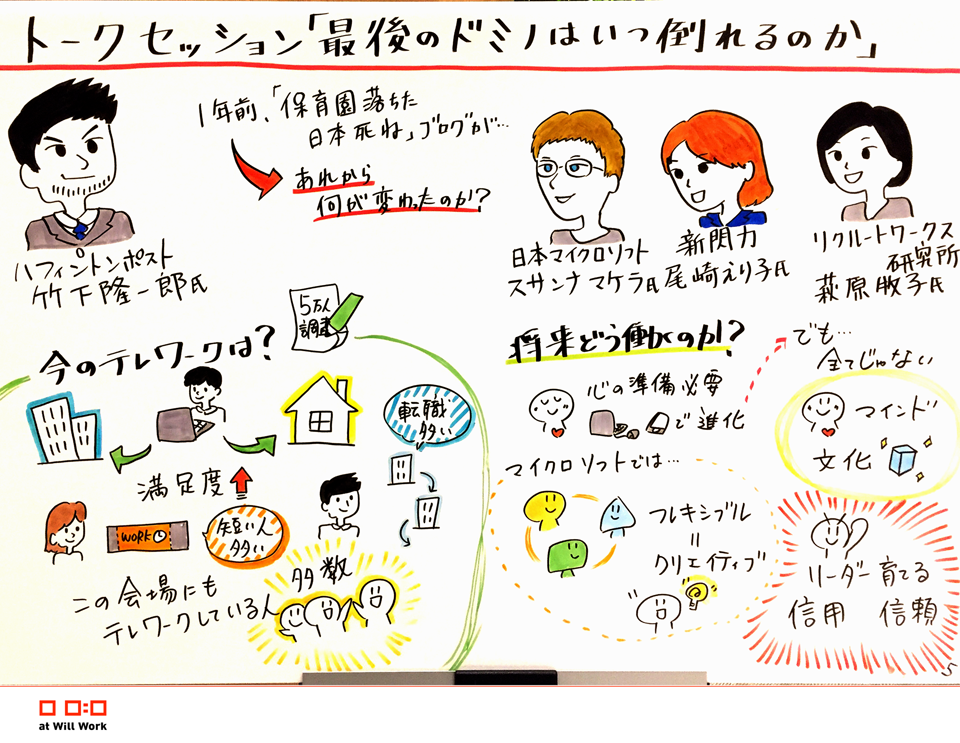 トークセッション「最後のドミノはいつ倒れるのか」
1年前、「保育園落ちた
日本死ね」ブログが…
あれから
何が変わったのか?
ハフィントンポスト
竹下隆一郎氏
日本マイクロソフト
スサンナ マケラ氏
新閃力
尾崎えり子氏
リクルートワークス
研究所
萩原牧子氏
5万人
調査
今のテレワークは?
転職
多い
満足度
WORK
短い人
多い
この会場にも
テレワークしている人
多数
将来どう働くのか?
心の準備必要
で進化
でも…
全てじゃない
マインド
文化
マイクロソフトでは…
フレキシブル
=
クリエイティブ
リーダー育てる
信用 信頼
5
at Will Work